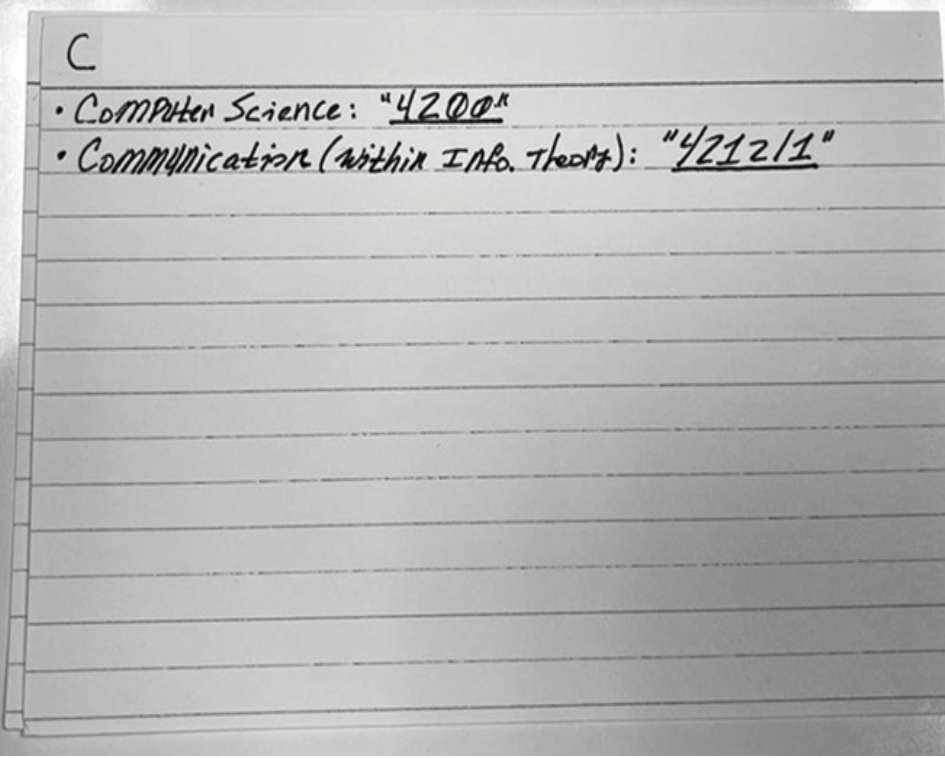 C
• Computer Science: "4200"
• Communication (within Info. Theory): "4212/1"